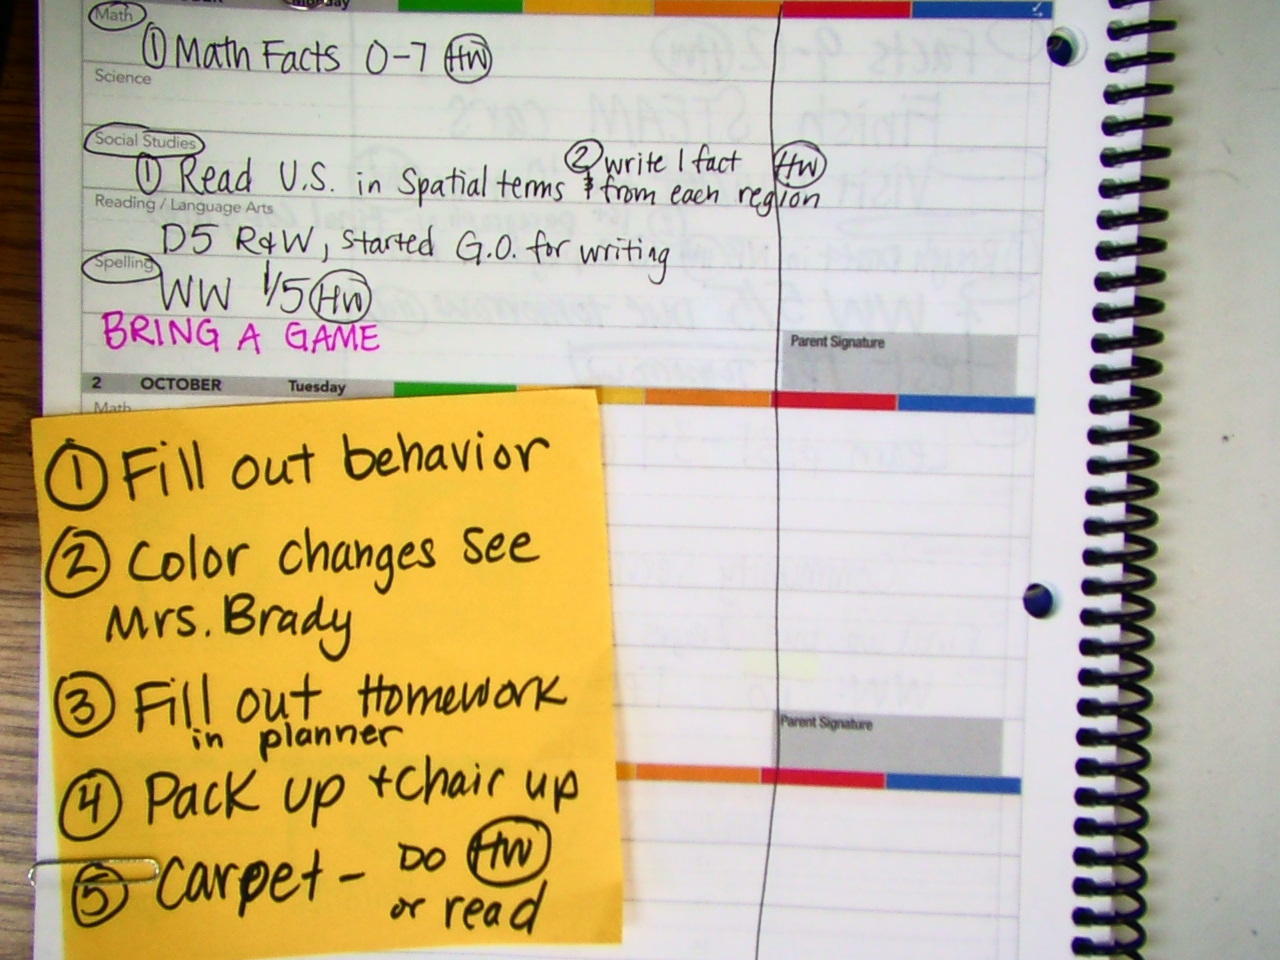 Math
① Math Facts 0-7 HW
Science
Social Studies
① Read U.S. in Spatial terms & ② write 1 fact from each region HW
Reading / Language Arts
D5 R&W, started G.O. for writing
Spelling
WW 1/5 HW
BRING A GAME
Parent Signature
2 OCTOBER Tuesday
Math
① Fill out behavior
② Color changes see
Mrs. Brady
③ Fill out Homework
in planner
Parent Signature
④ Pack up + chair up
⑤ Carpet - Do HW
or read